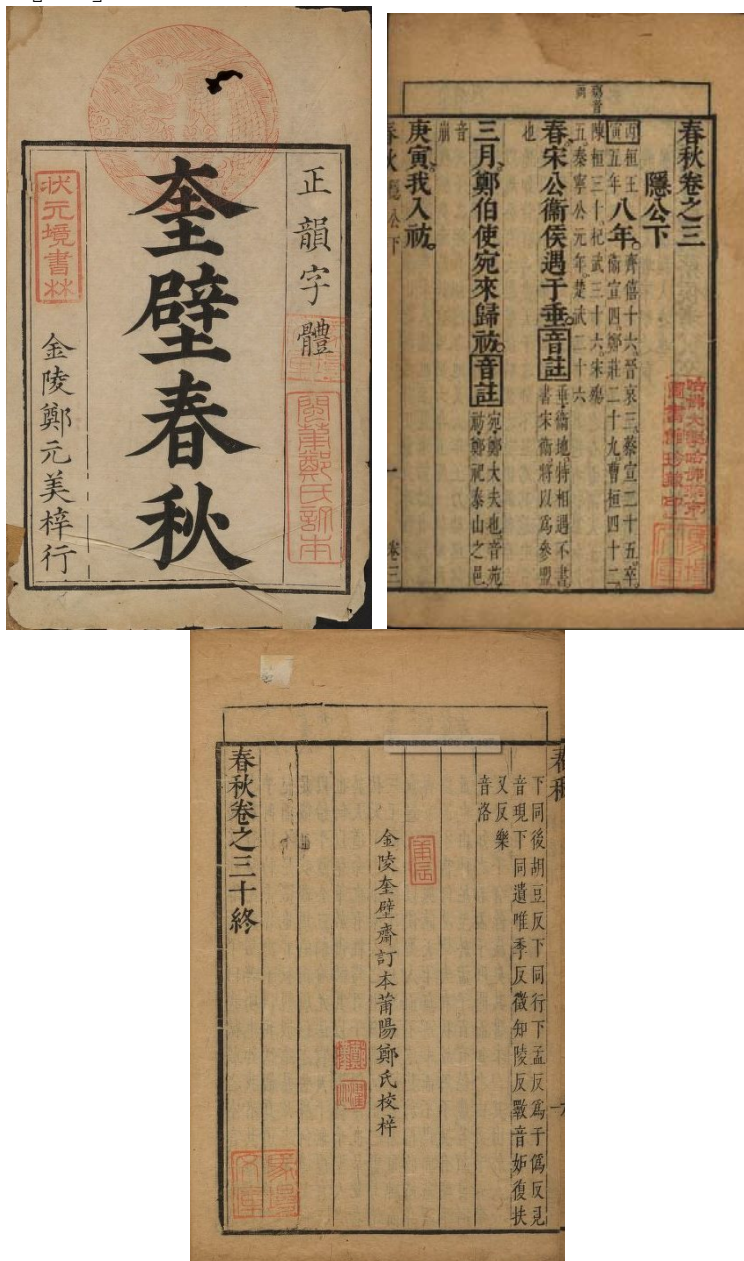 正韻字體
奎壁春秋
金陵鄭元美梓行
狀元境書林
閩莆鄭氏訂本
春秋卷之三
隱公下
丙寅桓王五年八年齊僖十六晉哀三蔡宣二十五卒
衞宣四鄭莊二十九曹桓四十二
陳桓三十杞武三十六宋殤
五秦寧公元年楚武二十六
鄭音
春宋公衞侯遇于垂音註垂衞地特相遇不書
書宋衞將以爲參盟
也
三月鄭伯使宛來歸祊音註宛鄭大夫也音苑
祊鄭祀泰山之邑
音
崩
庚寅我入祊
春秋 隱公下 一 卷三
哈佛大學哈佛燕京
圖書館珍藏印
春秋
下同後胡豆反下同行下孟反爲于僞反見
音現下同遺唯季反徵知陵反斁音妬復扶
又反樂
音洛
金陵奎壁齋訂本莆陽鄭氏校梓
春秋卷之三十終